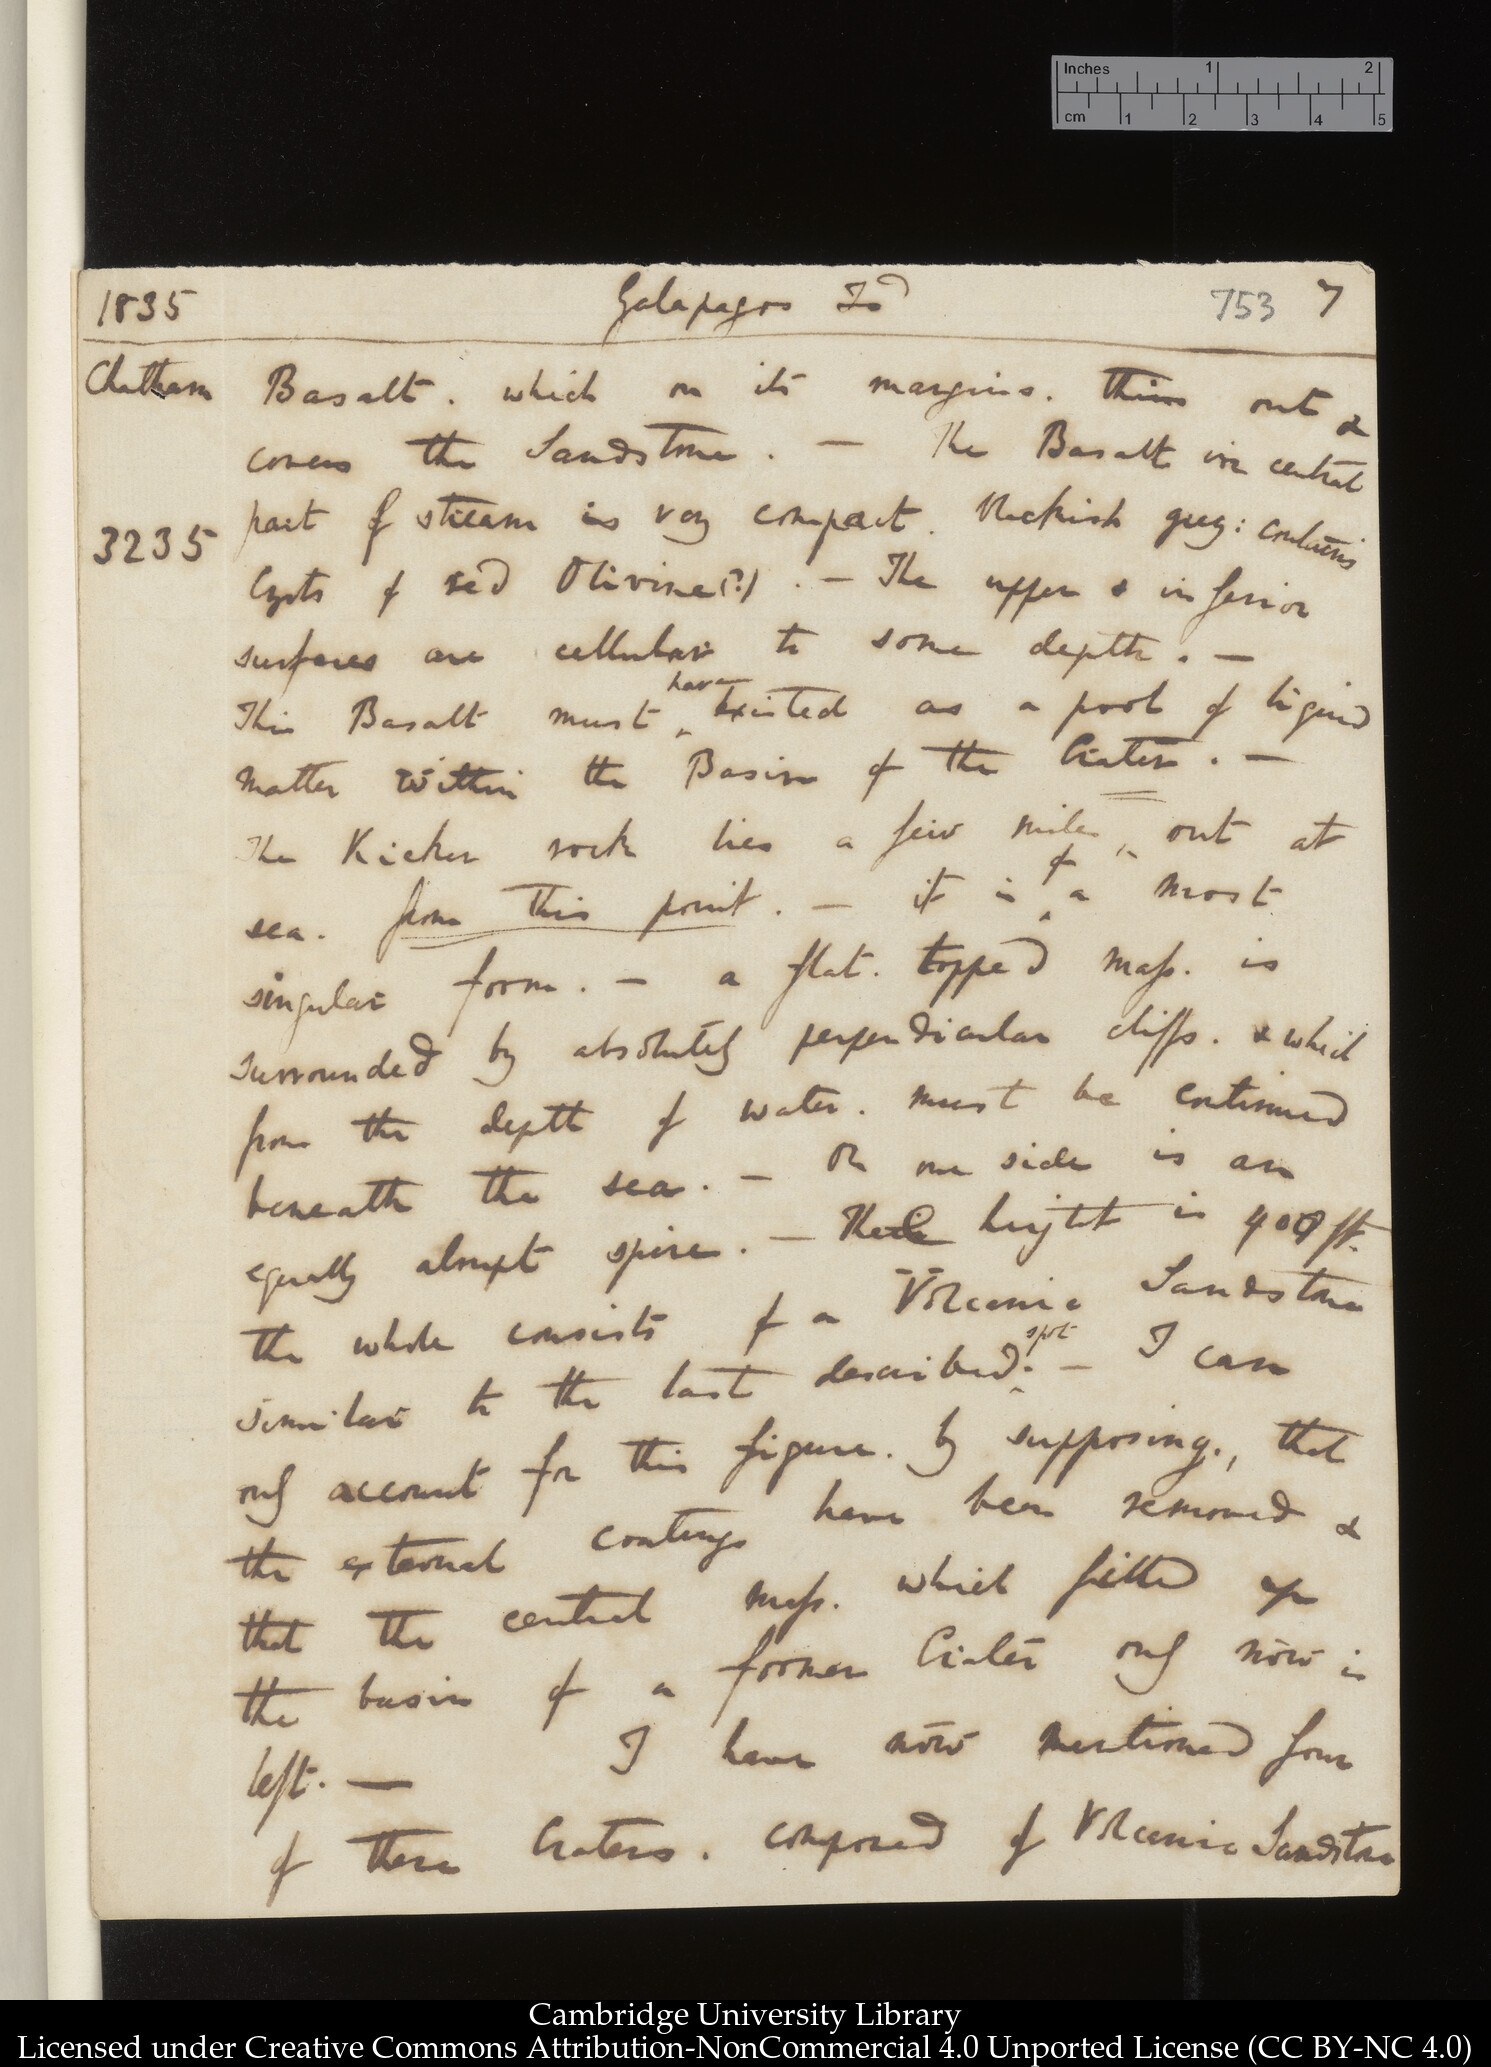 Inches 1 2
cm 1 2 3 4 5
1835 Galapagos Is^d 753 7
Chatham Basalt. which on its margins. thins out &
covers the Sandstone. — The Basalt in central
3235 part of stream is very compact. blackish grey: contains
Cysts of red Olivine(?). — The upper & inferior
surfaces are cellular to some depth. —
This Basalt must have existed as a pool of liquid
matter within the Basin of the Crater. —
The Kicker rock lies a few miles out at
sea. from this point. — it is of a most
singular form. — a flat. topped mass. is
surrounded by absolutely perpendicular cliffs. & which
from the depth of water. must be continued
beneath the sea. — On one side is an
equally abrupt spire. — The height is 400 ft.
the whole consists of a Volcanic Sandstone
similar to the last described spot. — I can
only account for this figure. by supposing, that
the external coatings have been removed &
that the central mass. which filled up
the basin of a former Crater only now is
left. — I have now mentioned four
of these Craters. composed of Volcanic Sandstone
Cambridge University Library
Licensed under Creative Commons Attribution-NonCommercial 4.0 Unported License (CC BY-NC 4.0)